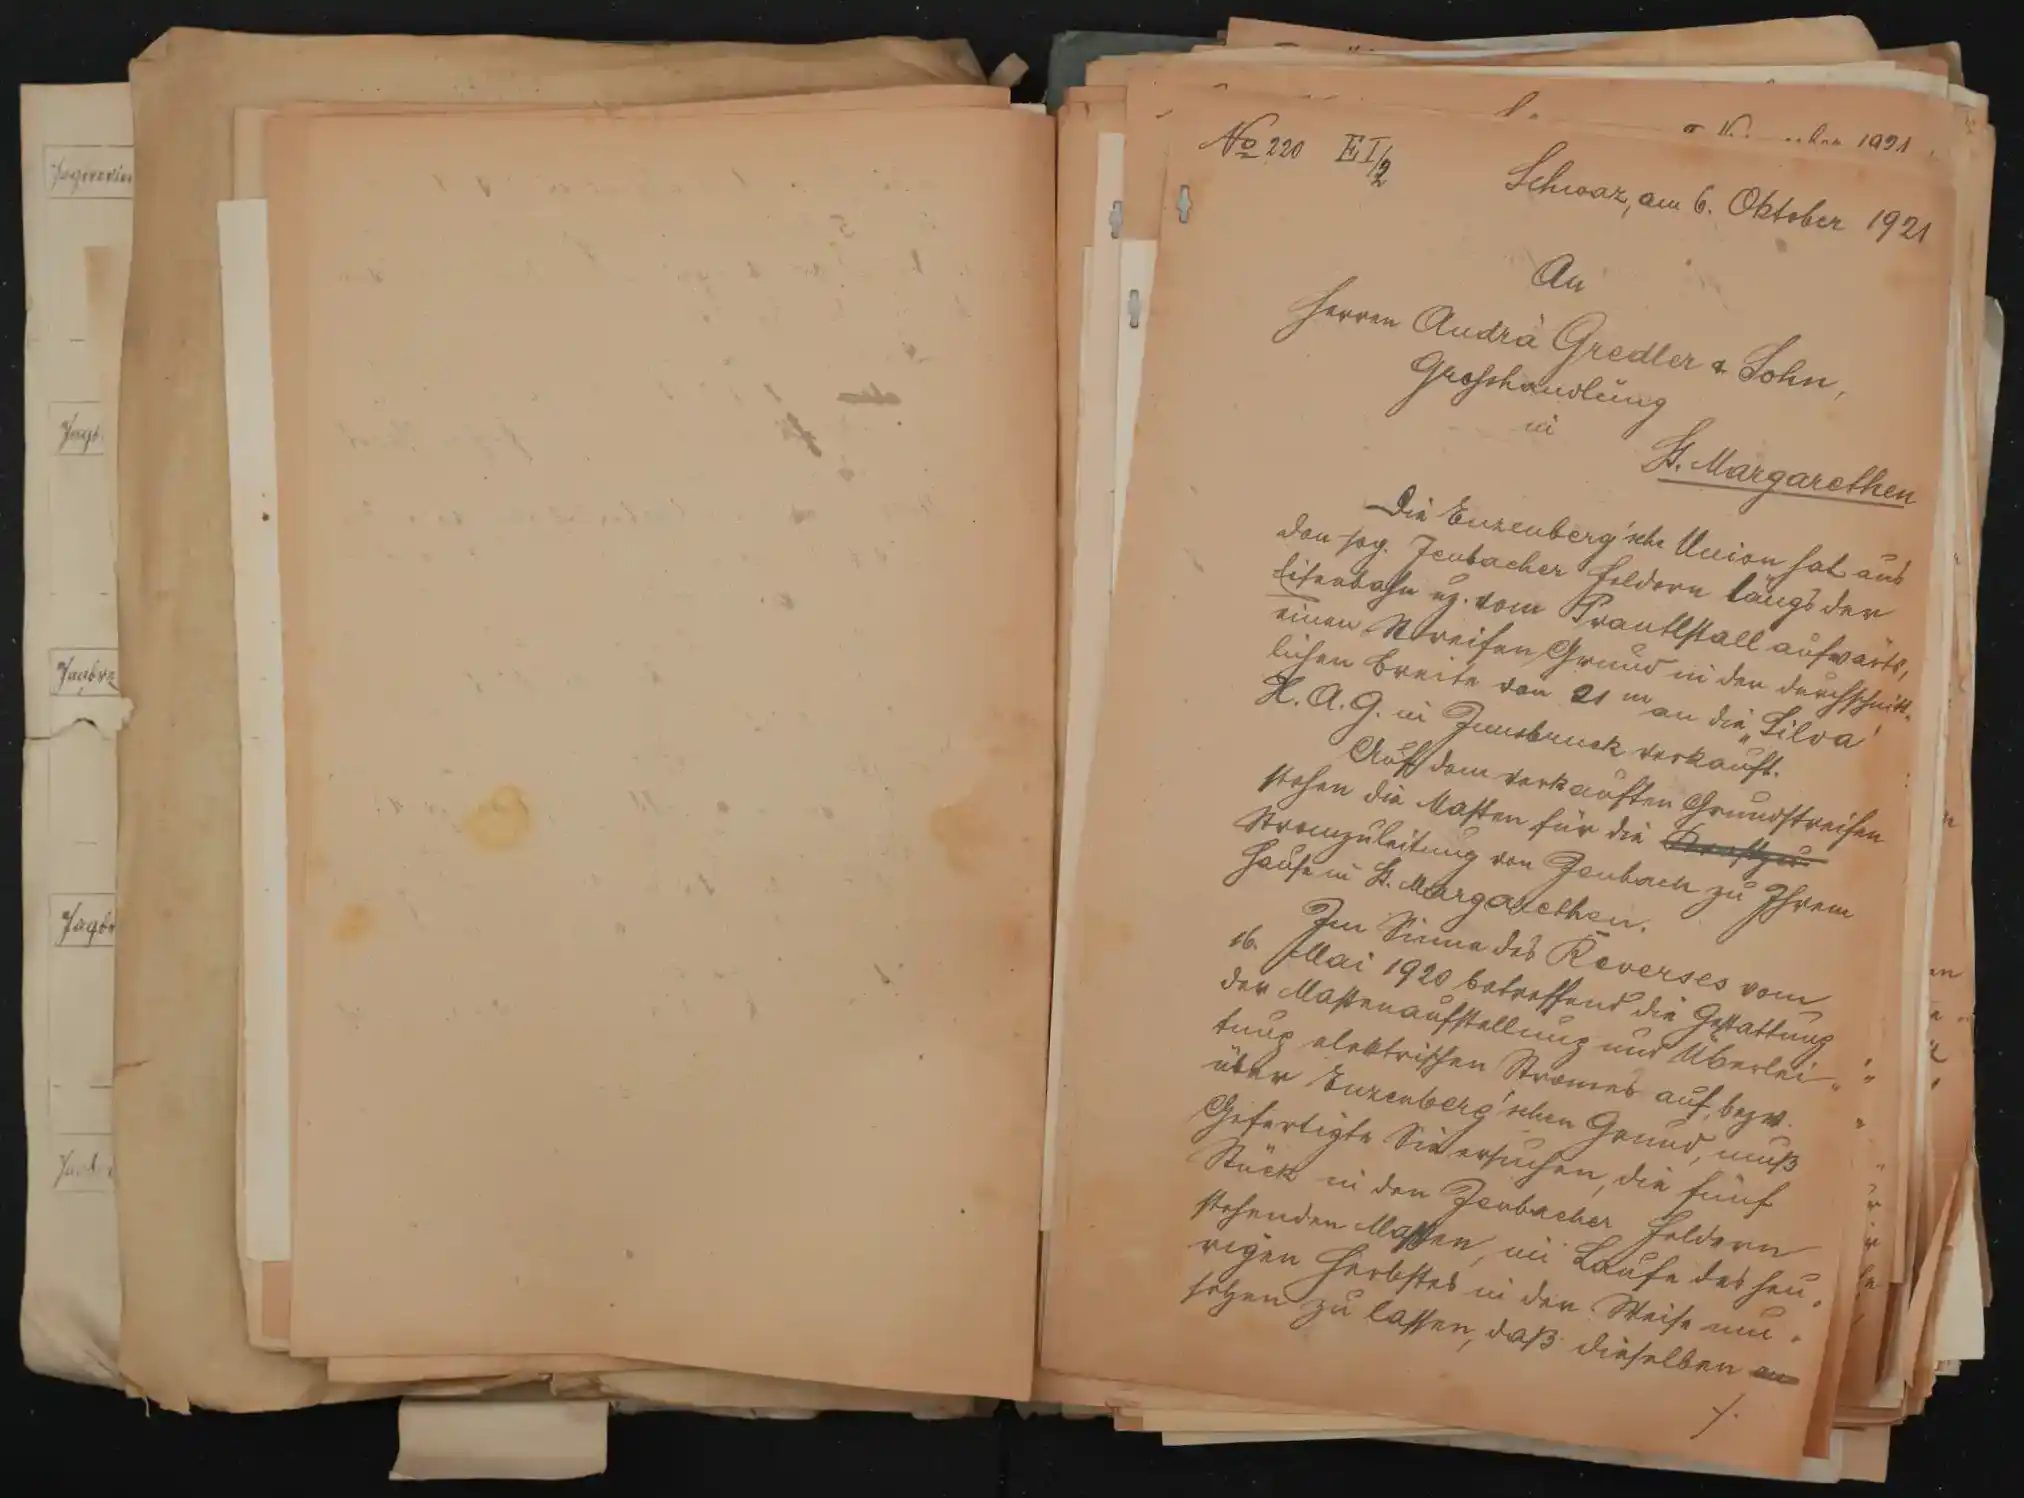 Jagdrevier
Jagd-
Jagdbez
Jagdbe
No 220 EI/2
1921
Schwaz, am 6. Oktober 1921
An
Herren Andrä Gredler & Sohn,
Großhandlung
in
St. Margarethen
Die Enzenberg'sche Union hat aus
den sog. Jenbacher Feldern längs der
Eisenbahn uz. vom Prantlstall aufwärts,
einen Streifen Grund in der durchschnitt-
lichen Breite von 21 m an die „Silva"
H.A.G. in Innsbruck verkauft.
Auf dem verkauften Grundstreifen
stehen die Masten für die Kraftzu-
Stromzuleitung von Jenbach zu Ihrem
Hause in St. Margarethen.
Im Sinne des Reverses vom
16. Mai 1920 betreffend die Gestattung
der Mastenaufstellung und Überlei-
tung elektrischen Stromes auf, bezw.
über Enzenberg'schen Grund, muß
Gefertigte Sie ersuchen, die fünf
Stück in den Jenbacher Feldern
stehenden Masten, im Laufe des heu-
rigen Herbstes in der Weise um-
setzen zu lassen, daß dieselben an
./.